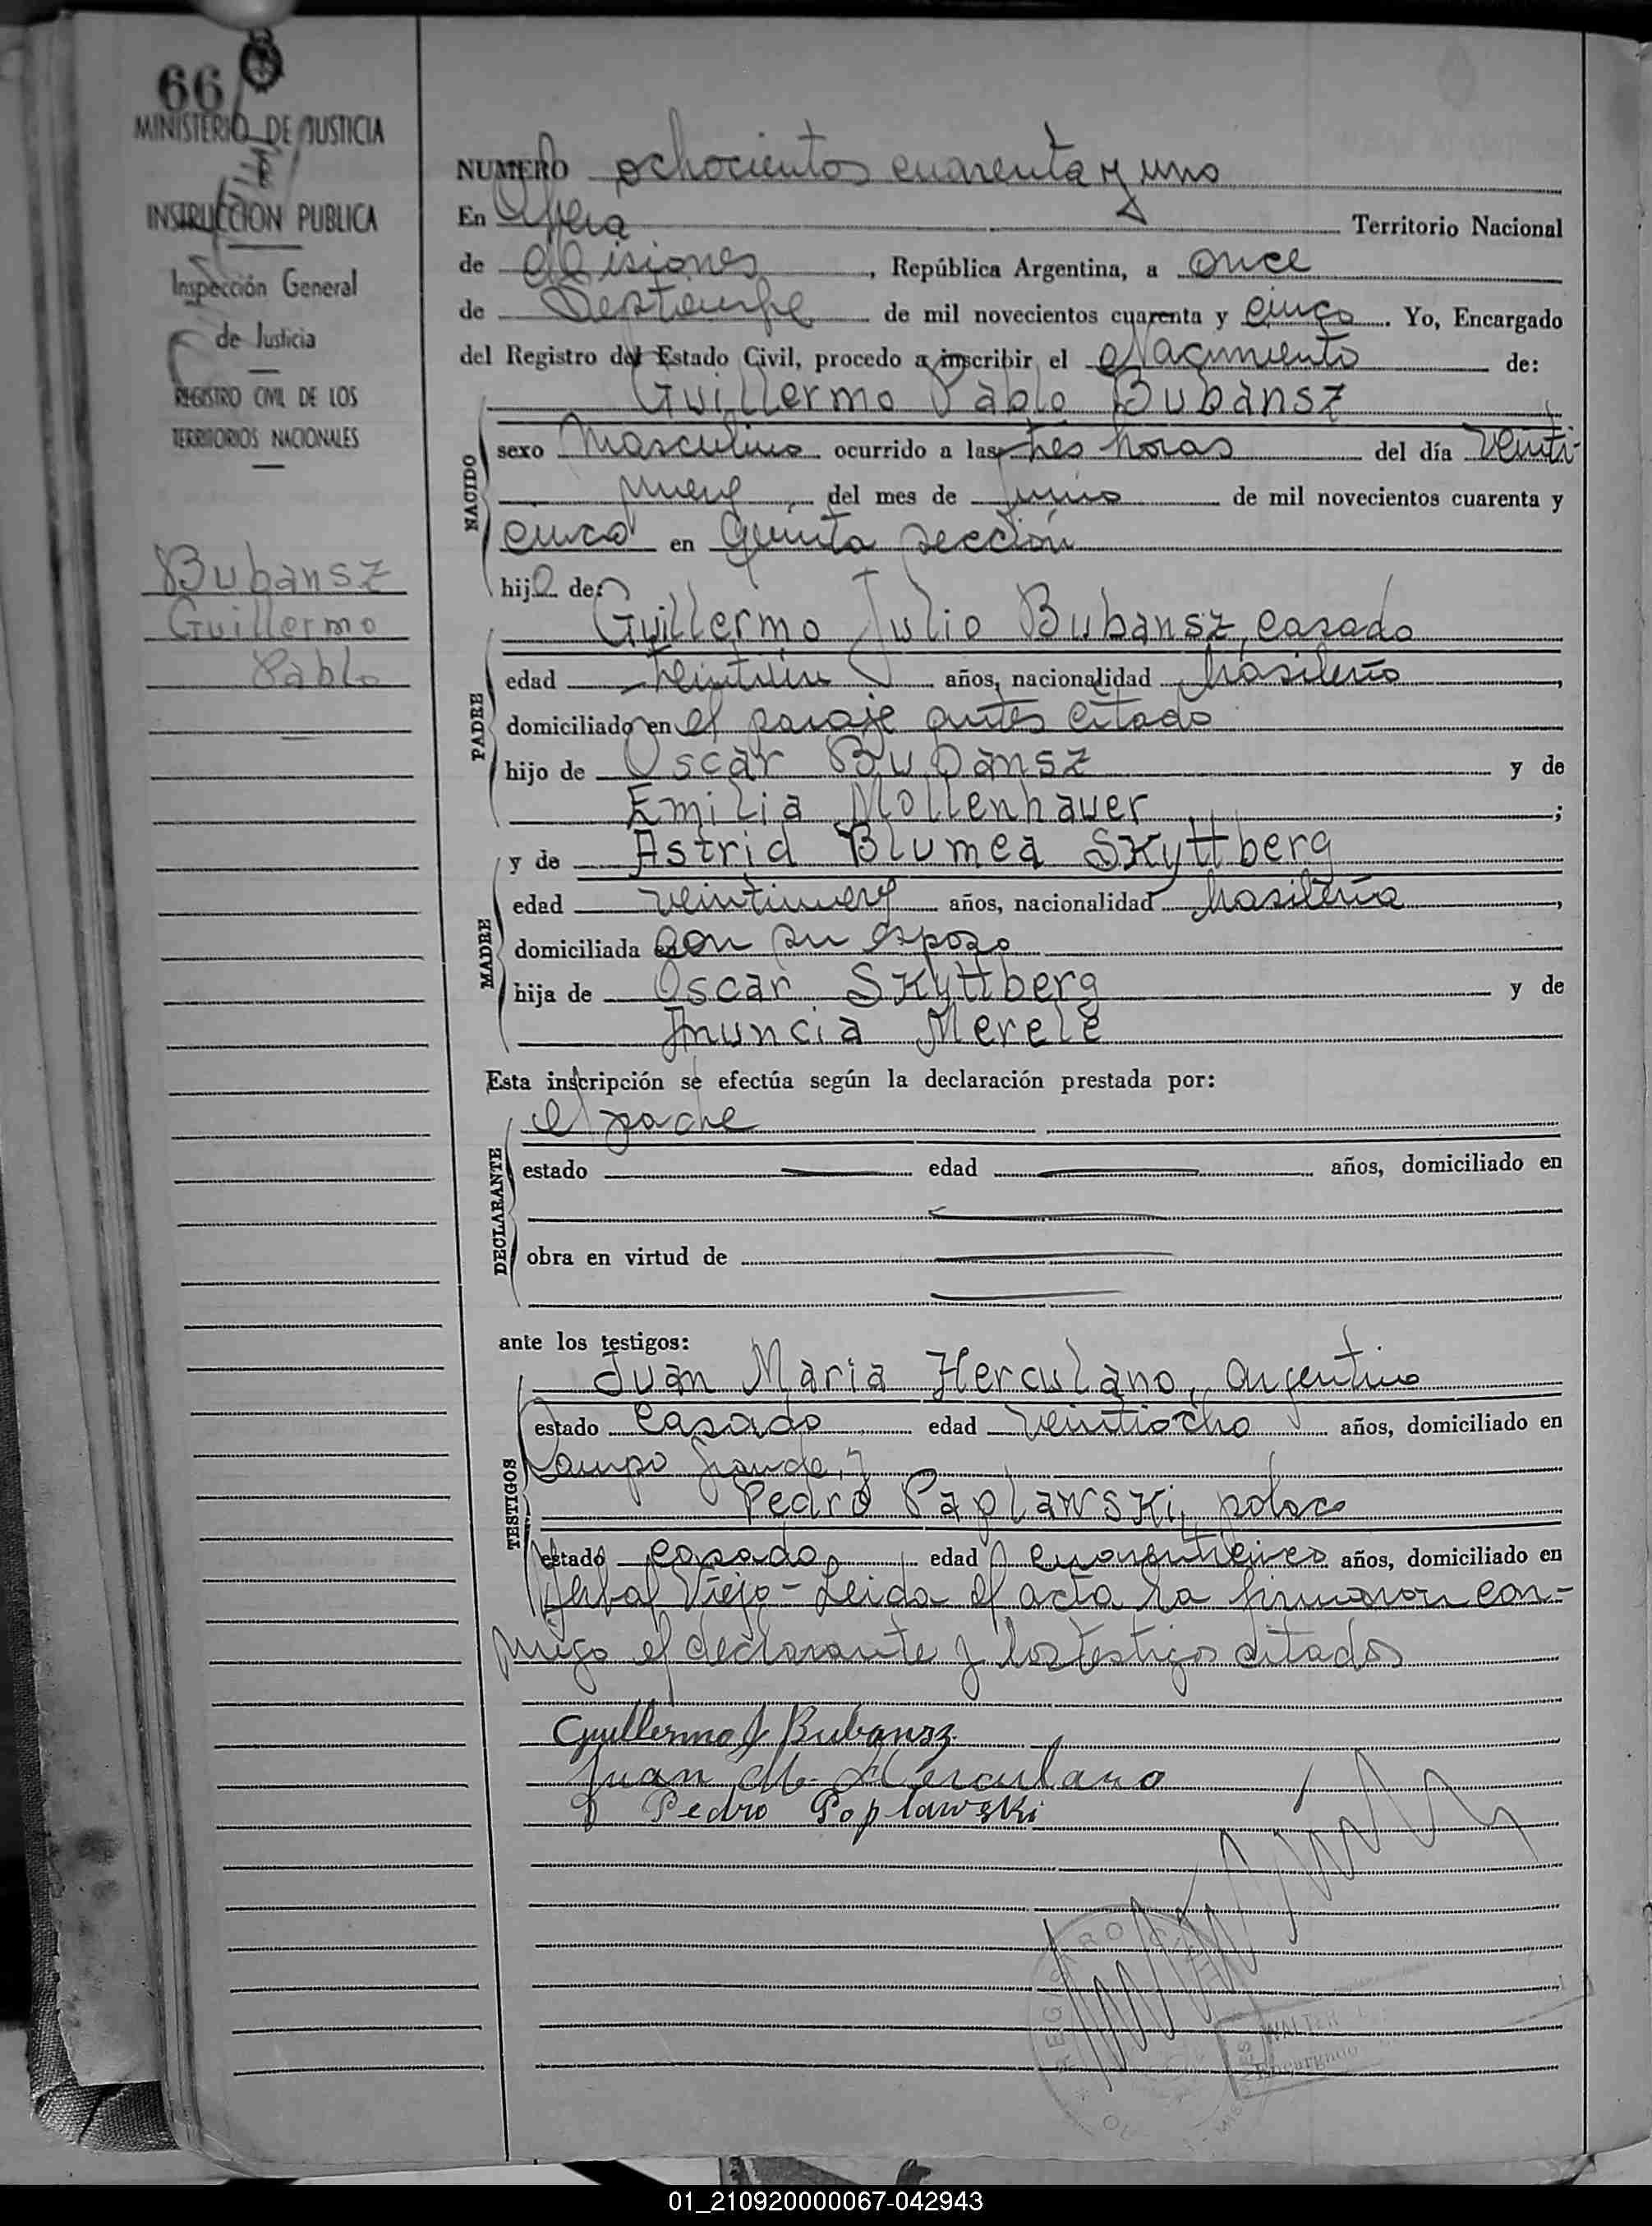 66
MINISTERIO DE JUSTICIA
E
INSTRUCCION PUBLICA
Inspección General
de Justicia
REGISTRO CIVIL DE LOS
TERRITORIOS NACIONALES
Bubansz
Guillermo
Pablo
NUMERO ochocientos cuarenta y uno
En Obera Territorio Nacional
de Misiones, República Argentina, a once
de Septiembre de mil novecientos cuarenta y cinco. Yo, Encargado
del Registro del Estado Civil, procedo a inscribir el Nacimiento de:
Guillermo Pablo Bubansz
NACIDO
sexo Masculino ocurrido a las tres horas del día veinti-
nueve del mes de junio de mil novecientos cuarenta y
cinco en Quinta sección
hijo de:
Guillermo Julio Bubansz, casado
PADRE
edad años, nacionalidad brasileño,
domiciliado en el paraje antes citado
hijo de Oscar Bubansz y de
Emilia Mollenhauer;
y de Astrid Blumea Skyttberg
MADRE
edad veintinueve años, nacionalidad brasileña,
domiciliada con su esposo
hija de Oscar Skyttberg y de
Anuncia Merele
Esta inscripción se efectúa según la declaración prestada por:
el padre
DECLARANTE
estado edad años, domiciliado en
obra en virtud de
ante los testigos:
Juan Maria Herculano, argentino
TESTIGOS
estado casado edad veintiocho años, domiciliado en
Campo Grande, y
Pedro Paplawski, polaco
estado casado edad años, domiciliado en
Yerbal Viejo - Leida el acta la firmaron con-
migo el declarante y los testigos citados
Guillermo J Bubansz
Juan M. Herculano
Pedro Poplawski
REGISTRO CIVIL
WALTER
Encargado
01_210920000067-042943